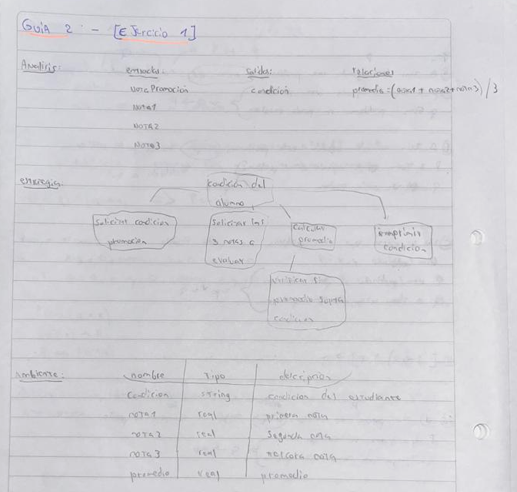 Guía 2 - [Ejercicio 1]
Análisis: entrada salida: relaciones
nota Promoción condición promedio = (nota1 + nota2 + nota3) / 3
nota1
nota2
nota3
estrategia
condición del
alumno
solicitar condición
promoción
solicitar las
3 notas a
evaluar
calcular
promedio
imprimir
condición
promedio supera
condición
ambiente: nombre tipo descripción
condición string condición del estudiante
nota1 real primera nota
nota2 real segunda nota
nota3 real nota
promedio real promedio